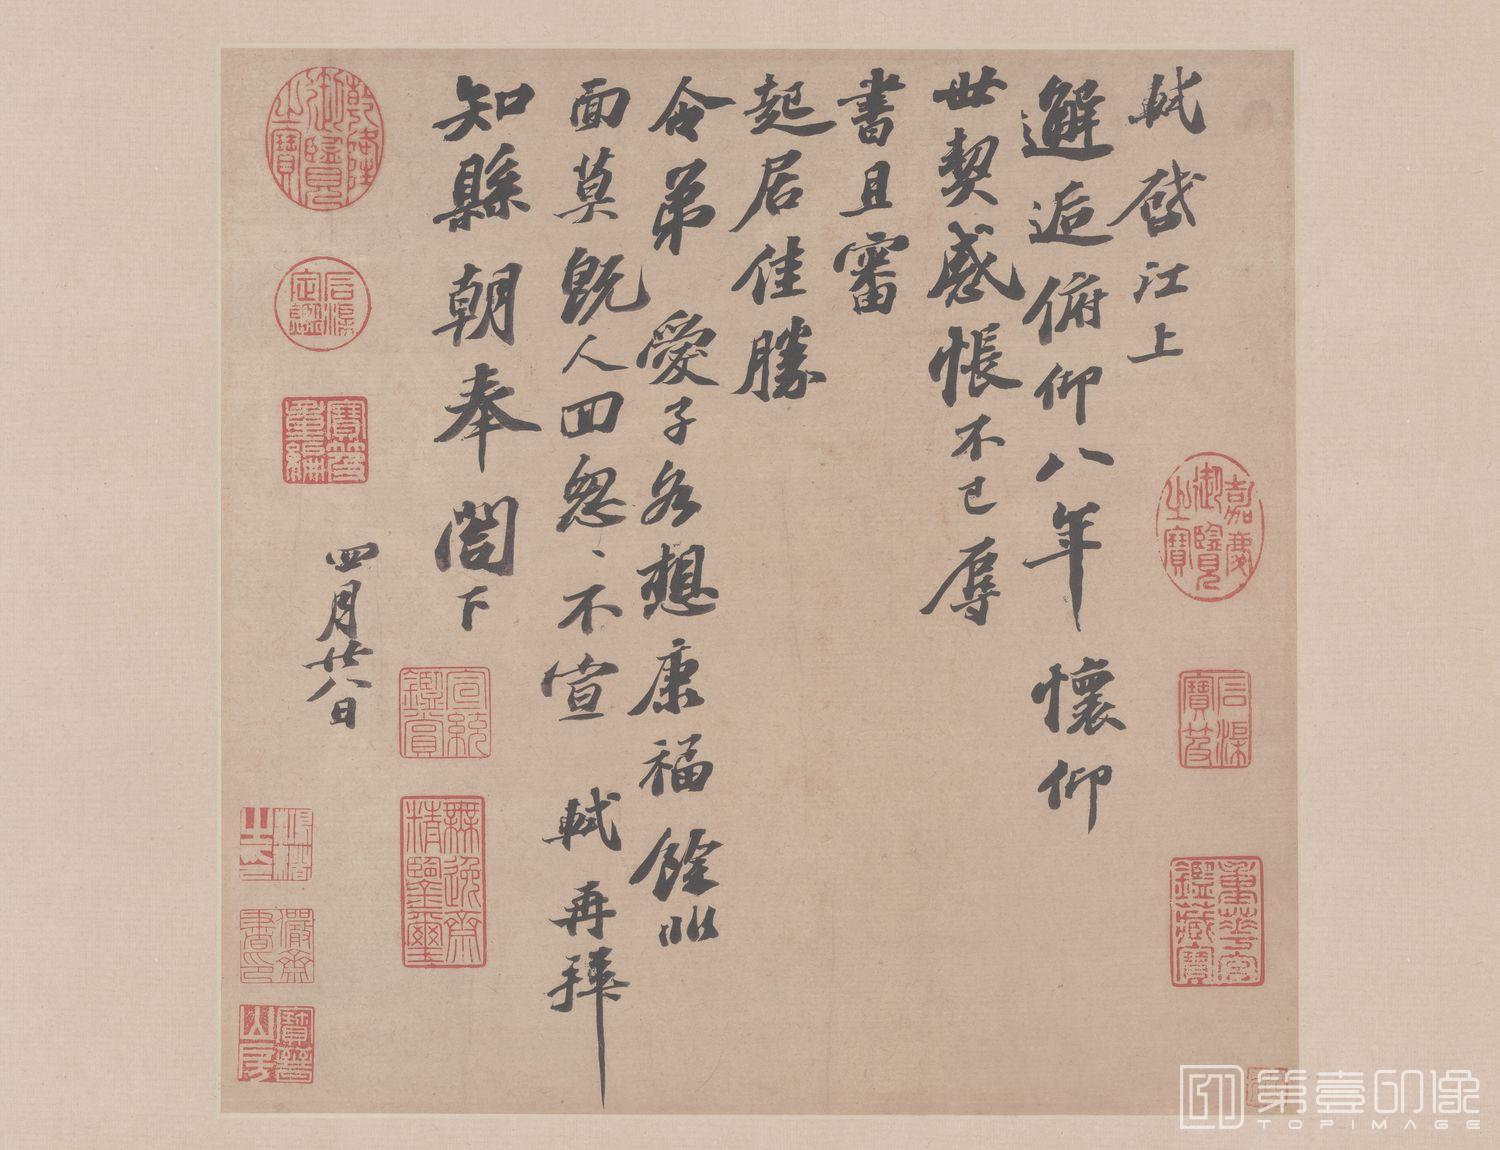 軾啓江上
邂逅俯仰八年懷仰
世契感悵不已辱
書且審
起居佳勝
令弟愛子各想康福餘非
面莫旣人回怱〻不宣軾再拜
知縣朝奉閤下
四月廿八日
乾隆御覽之寶
石渠定鑑
寶笈重編
宣統鑑賞
無逸齋精鑒璽
嘉慶御覽之寶
石渠寶笈
重華宮鑑藏寶
儼齋書印
第壹印像
TOPIMAGE